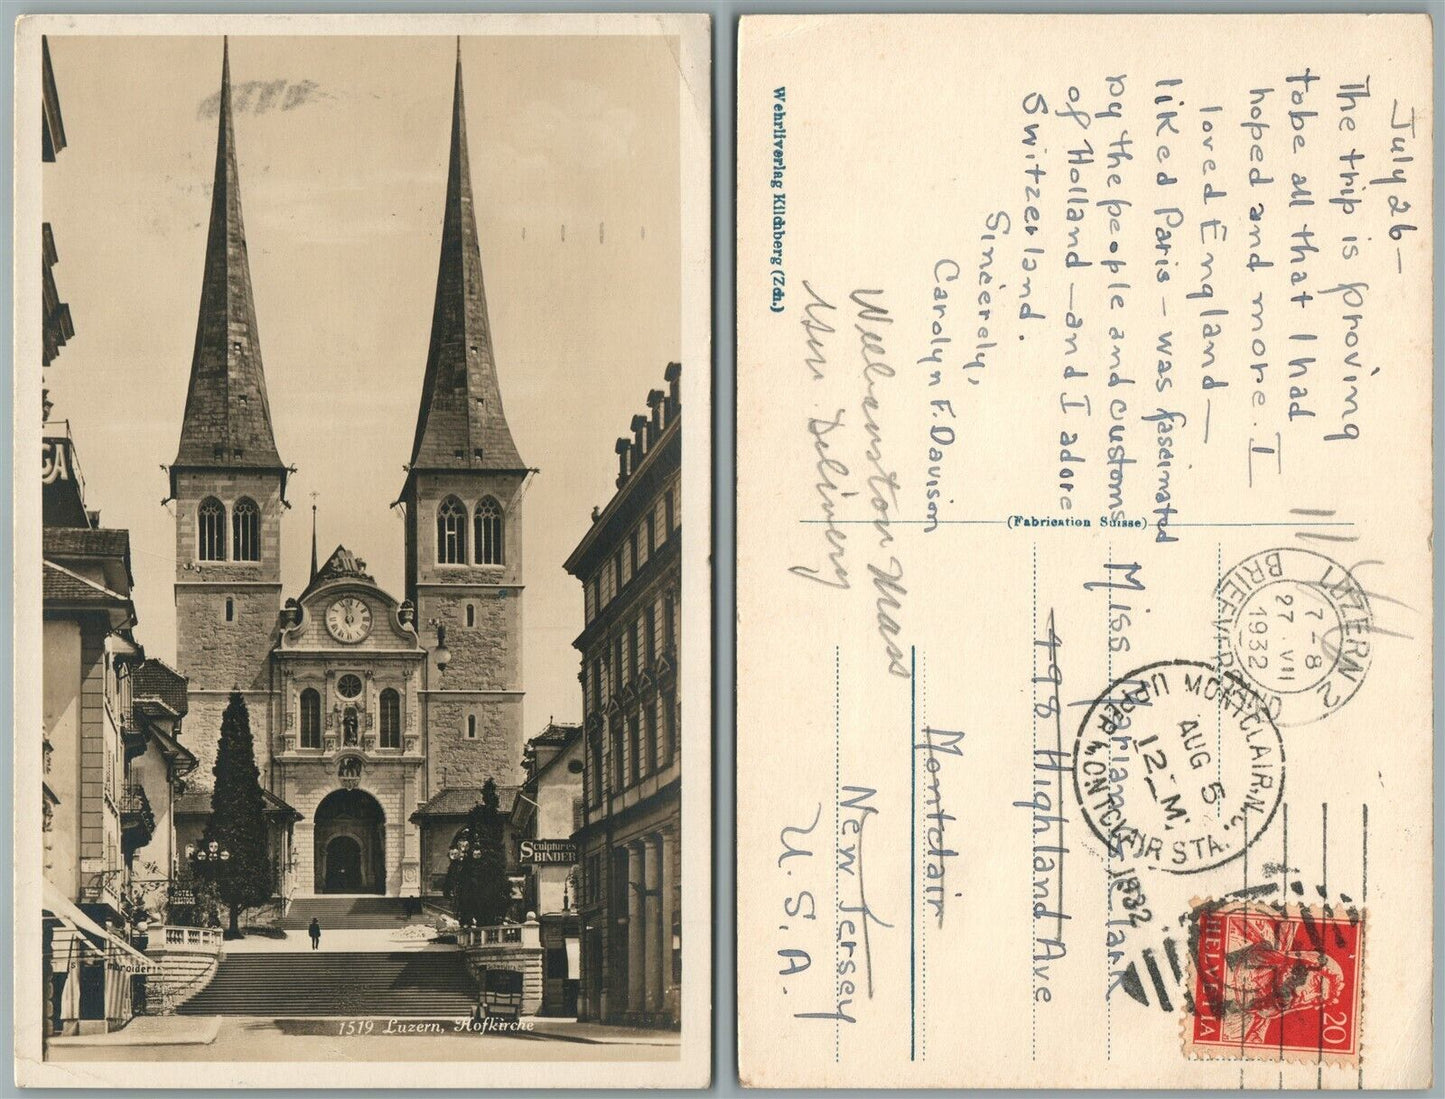 GA
Sculptures
BINDER
HOTEL
1519 Luzern, Hofkirche
Wehrliverlag Kilchberg (Zch.)
(Fabrication Suisse)
July 26-
The trip is proving
to be all that I had
hoped and more. I
loved England —
liked Paris - was fascinated
by the people and customs
of Holland - and I adore
Switzerland.
Sincerely,
Carolyn F. Davison
Williamstown Mass
Gen. Delivery
Miss Marianne Clark
498 Highland Ave
Montclair
New Jersey
U. S. A.
LUZERN 2
7-8
27. VII
1932
BRIEFVERSAND
MONTCLAIR, N.J.
AUG 5
12 M.
UPPER MONTCLAIR STA.
1932
HELVETIA
20